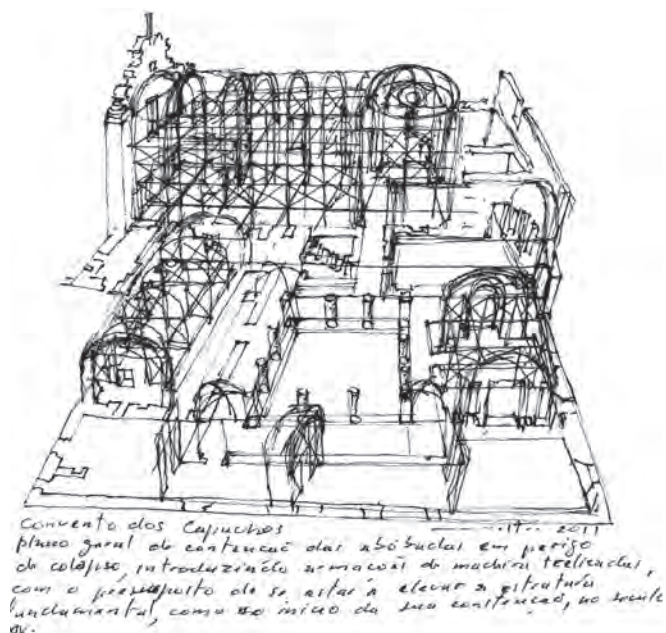 Convento dos Capuchos
2011
plano geral de contenção das abóbadas em perigo
de colapso, introduzindo armações de madeira treliçadas,
com o pressuposto de se estar a elevar a estrutura
fundamental, como no início da sua construção, no século